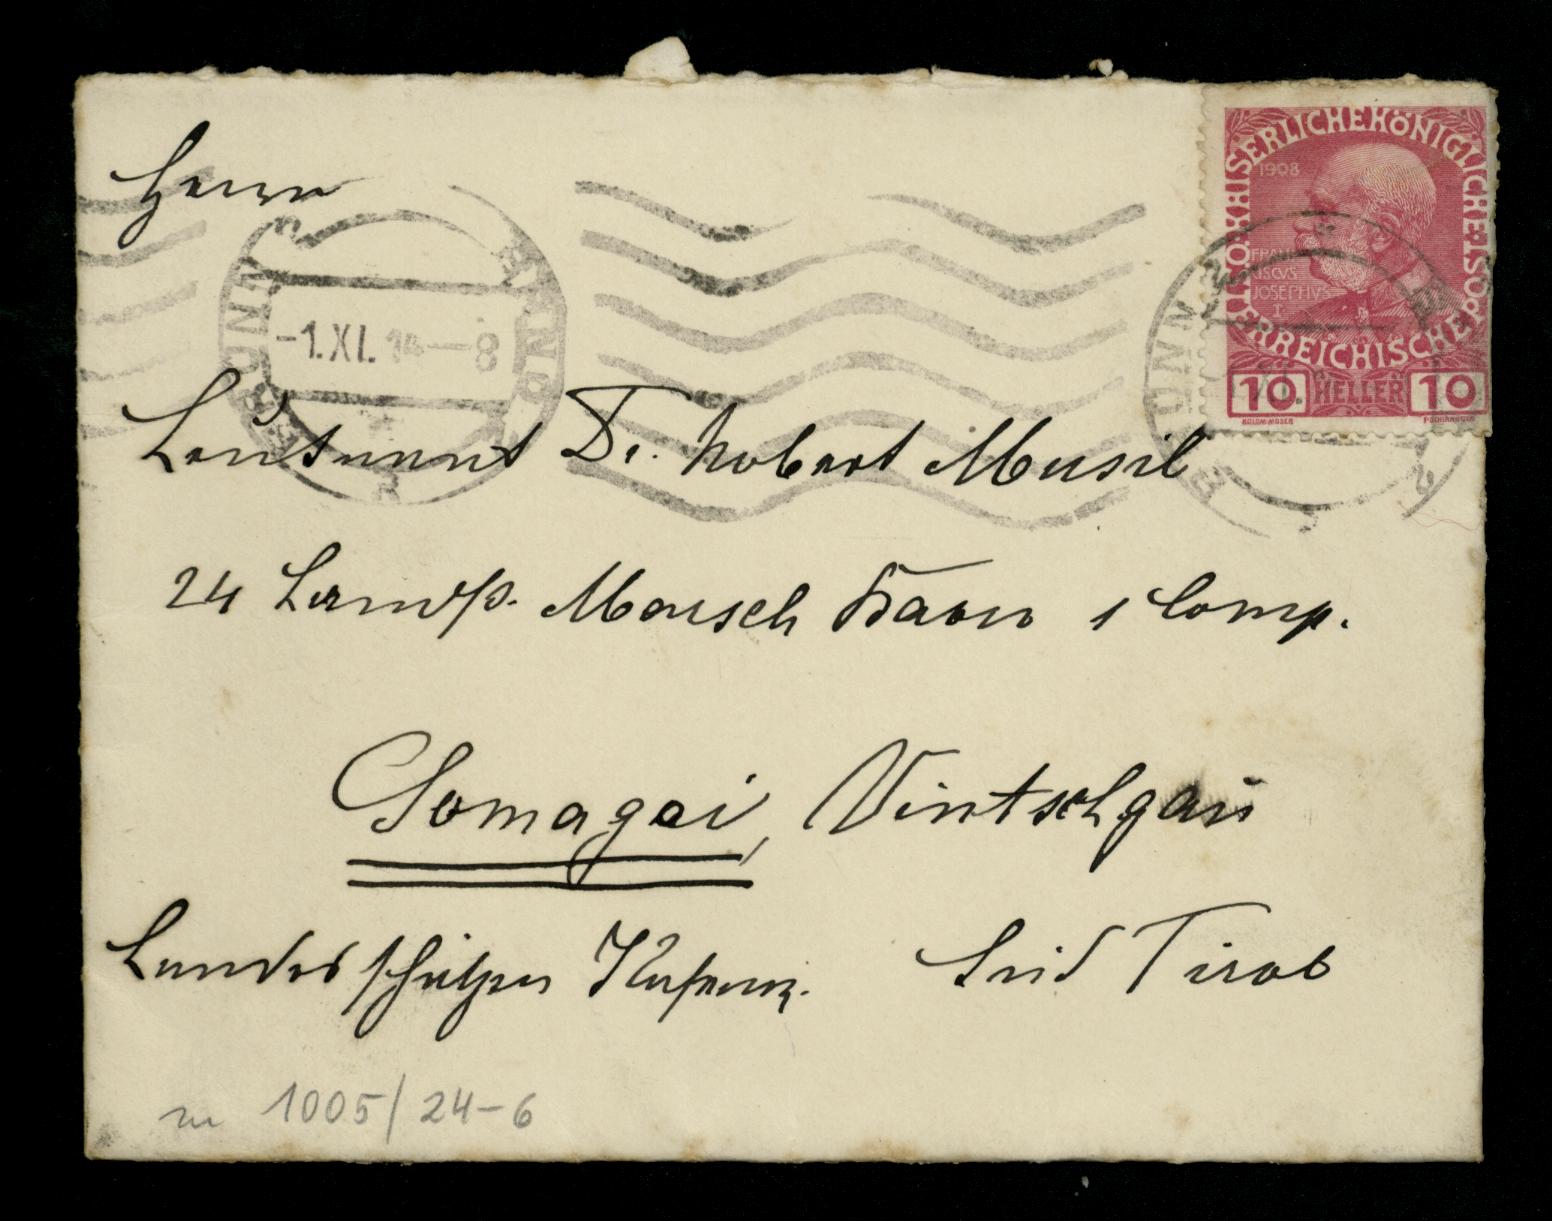 Herrn
KAISERLICHE KÖNIGLICHE
1908
FRANCISCVS
JOSEPHVS
I
ÖSTERREICHISCHE POST
10 HELLER 10
BRÜNN BRNO
-1.XI.14-8
Leutnant Dr. Robert Musil
24 Landst. Marsch Baon 1 Comp.
Gomagoi, Vintschgau
Landesschützen Kaserne.
Süd Tirol
1005/24-6